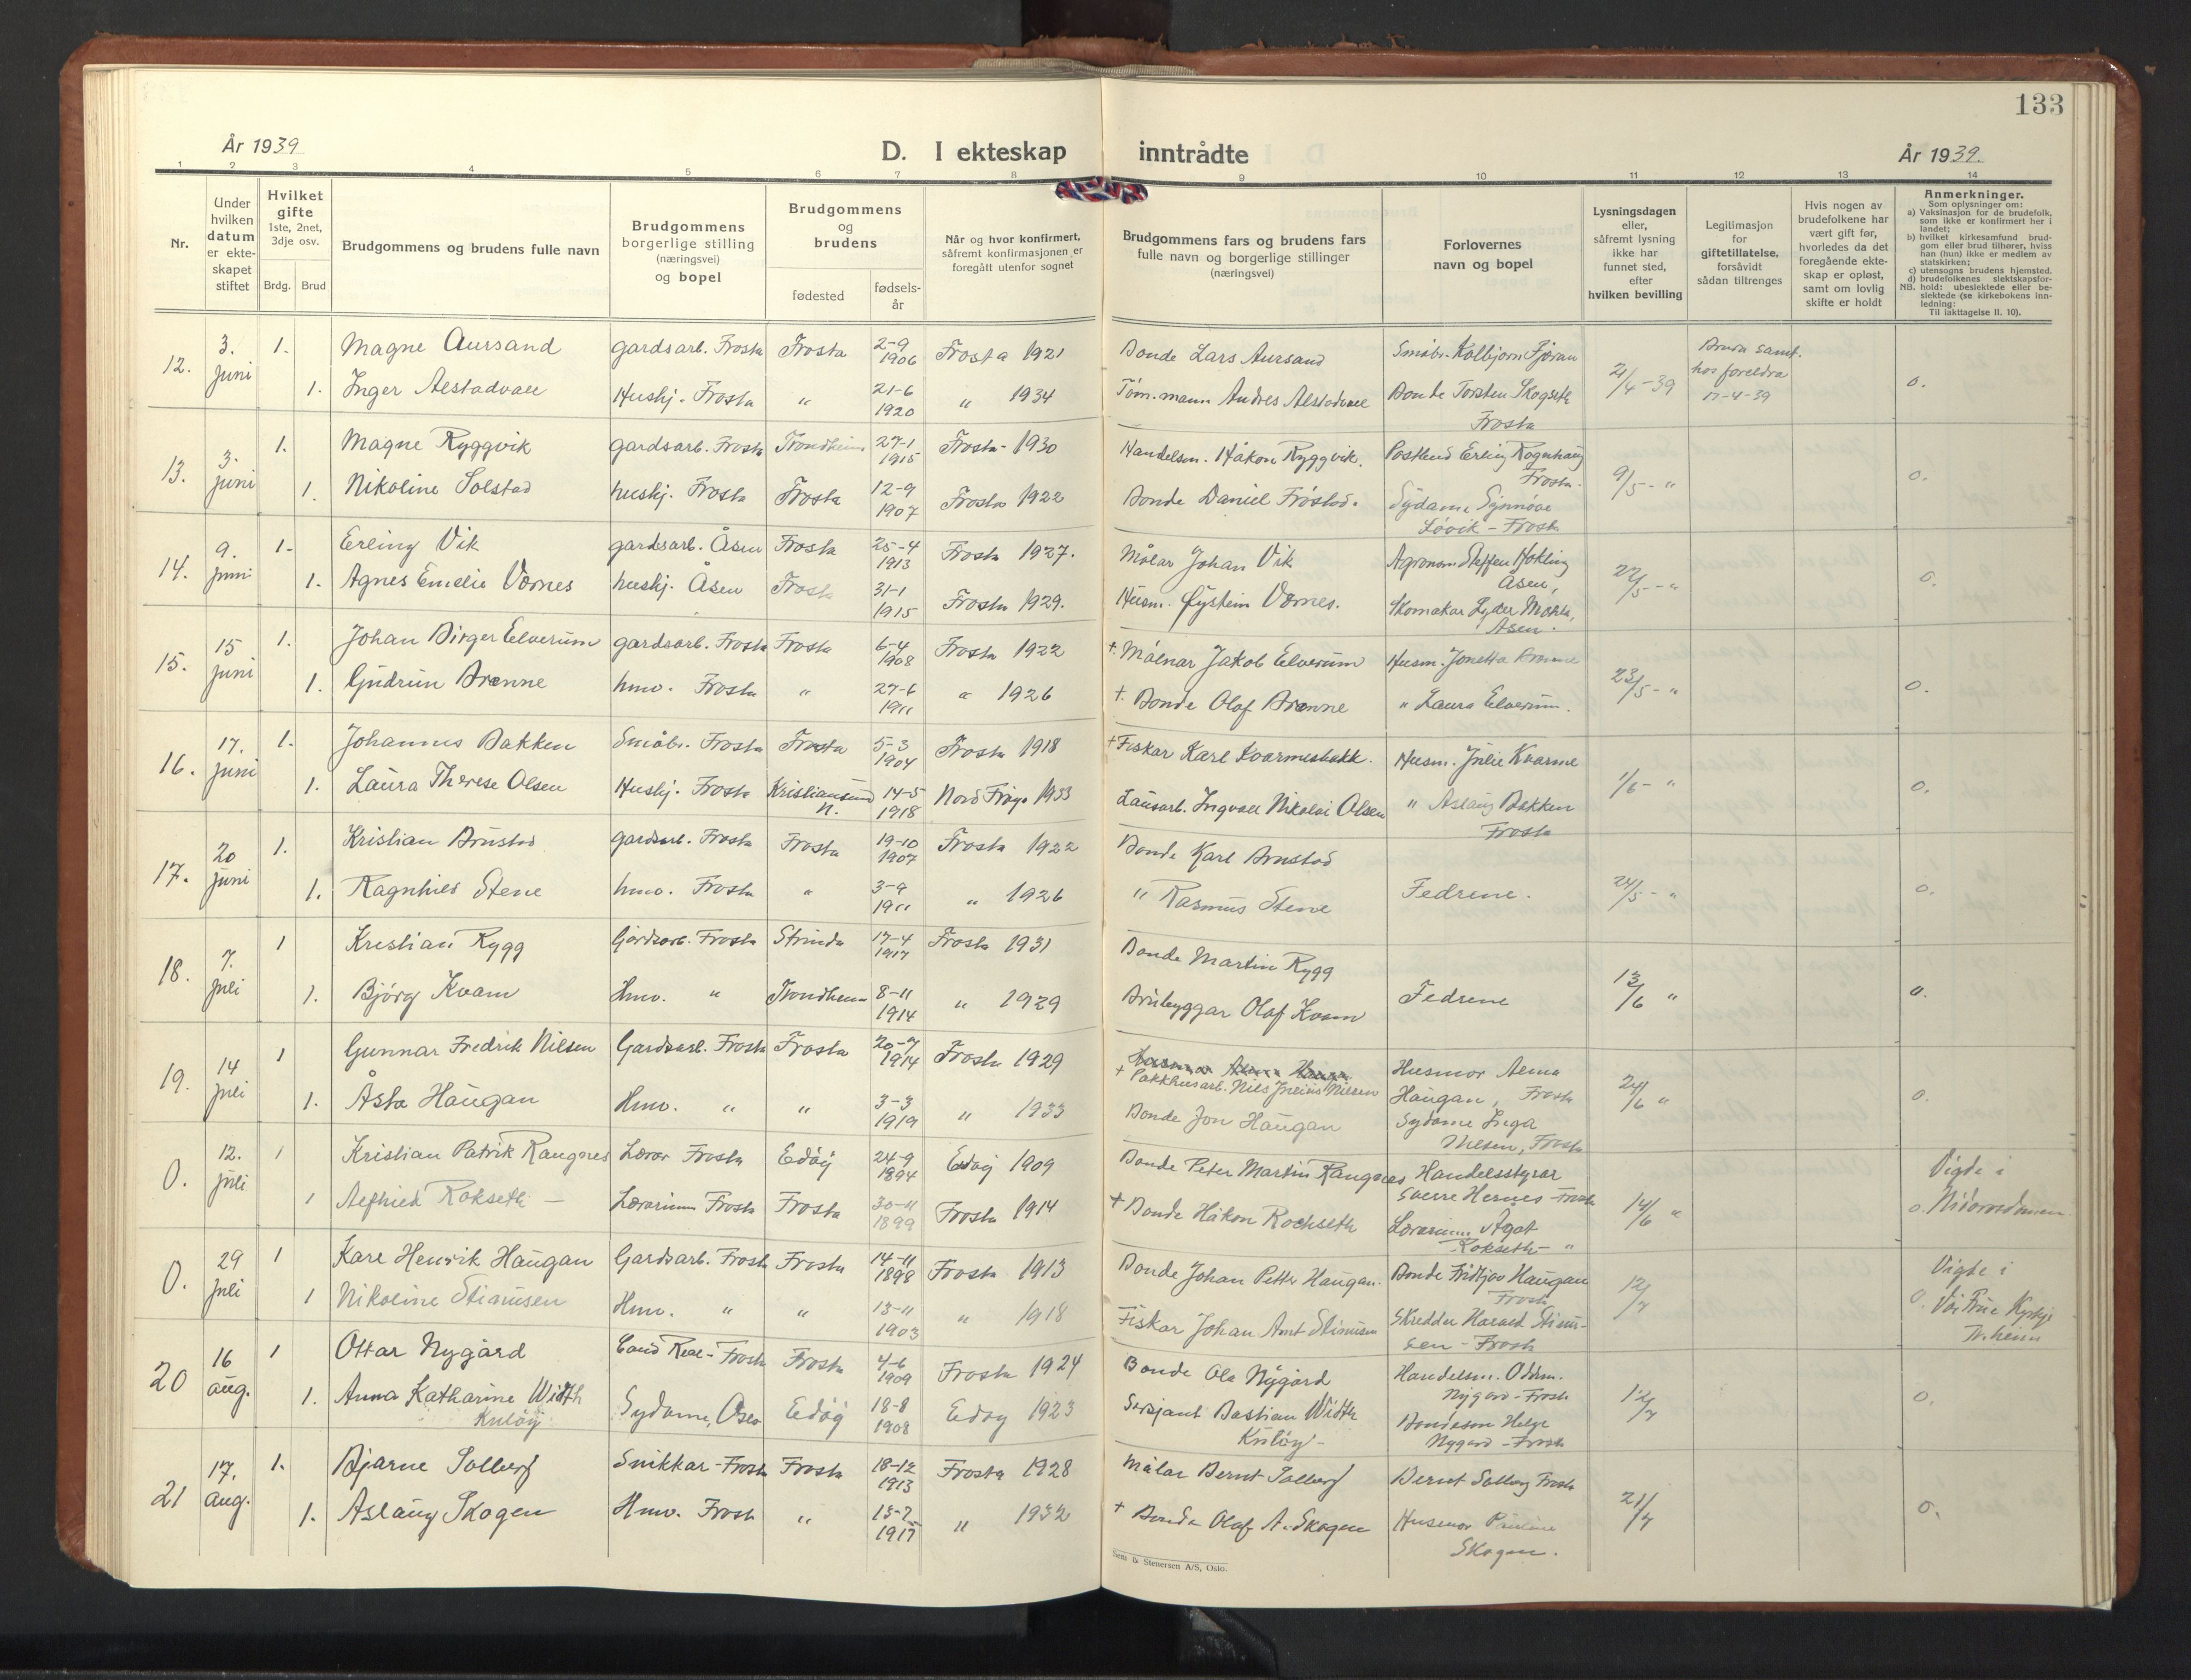 133
År 1939
D. I ekteskap inntrådte
År 1939.
1 2 3 4 5 6 7 8 9 10 11 12 13 14
Nr.
Under hvilken datum er ekteskapet stiftet
Hvilket gifte 1ste, 2net, 3dje osv.
Brdg. Brud
Brudgommens og brudens fulle navn
Brudgommens borgerlige stilling (næringsvei) og bopel
Brudgommens og brudens
fødested fødselsår
Når og hvor konfirmert, såfremt konfirmasjonen er foregått utenfor sognet
Brudgommens fars og brudens fars fulle navn og borgerlige stillinger (næringsvei)
Forlovernes navn og bopel
Lysningsdagen eller, såfremt lysning ikke har funnet sted, efter hvilken bevilling
Legitimasjon for giftetillatelse, forsåvidt sådan tiltrenges
Hvis nogen av brudefolkene har vært gift før, hvorledes da det foregående ekteskap er opløst, samt om lovlig skifte er holdt
Anmerkninger.
Som oplysninger om:
a) Vaksinasjon for de brudefolk, som ikke er konfirmert her i landet;
b) hvilket kirkesamfund brudgom eller brud tilhører, hviss han (hun) ikke er medlem av statskirken;
c) utensogns brudens hjemsted.
d) brudefolkenes slektskapsforhold: ubeslektede eller beslektede (se kirkebokens innledning:
NB.
Til iakttagelse II. 10).
12. 3. juni 1. Magne Aursand gardsarb. Frosta Frosta 2-9 1906 Frosta 1921 Bonde Lars Aursand Småbr. Kolbjørn Fjøran 21/4-39 samt. hos foreldra 17-4-39 0.
1. Inger Alstadvall Hushj. Frosta " 21-6 1920 " 1934 Tøm.mann Andres Alstadvall Bonde Torsten Skogseth Frosta
13. 3. juni 1. Magne Ryggvik gardsarb. Frosta Trondheim 27-1 1915 Frosta - 1930 Handelsm. Håkon Ryggvik. Postbud Erling Rognhaug Frosta. 9/5-" 0.
1. Nikoline Solstad hushj. Frosta Frosta 12-9 1907 Frosta 1922 Bonde Daniel Frøstad. Sydame Synnøve Løvik - Frosta
14. 9. juni 1. Erling Vik gardsarb. Åsen Frosta 25-4 1913 Frosta 1927. Målar Johan Vik Agronom Steffen Hokling Åsen, 22/5-" 0.
1. Agnes Emelie Vornes hushj. Åsen Frosta 31-1 1915 Frosta 1929. Husm. Øystein Vornes. Skomakar Lyder Åsen.
15. 15 juni 1. Johan Birger Elverum gardsarb. Frosta Frosta 6-4 1908 Frosta 1922 +. Målnar Jakob Elverum Husm. Jonetta Brenne 23/5-" 0.
1. Gudrun Brenne hmv. Frosta " 27-6 1911 " 1926 +. Bonde Olaf Brenne " Laura Elverum.
16. 17. juni 1. Johannes Bakken Småbr. Frosta Frosta 5-3 1904 Frosta 1918 + Fiskar Karl Kvarmesbakk. Husm. Julie Kvarme 1/6-" 0.
1. Laura Therese Olsen Hushj. Frosta Kristiansund N. 14-5 1918 Nord Frøya 1933 Lausarb. Ingvall Nikolai Olsen " Aslaug Bakken Frosta
17. 20 juni 1. Kristian Brustad gardsarb. Frosta Frosta 19-10 1907 Frosta 1922 Bonde Karl Brustad Fedrene. 24/5-" 0.
1. Ragnhild Stene hmv. Frosta " 3-9 1911 " 1926 " Rasmus Stene
18. 7. juli 1 Kristian Rygg Gardsarb. Frosta Strinda 17-4 1917 Frosta 1931 Bonde Martin Rygg Fedrene 13/6 " 0.
1. Bjørg Kvam Hmv. " Trondheim 8-11 1914 " 1929 Brubyggar Olaf Kvam
19. 14 juli 1 Gunnar Fredrik Nilsen Gardsarb. Frosta Frosta 20-7 1914 Frosta 1929 + Pakkhusarb. Nils Julius Nilsen Husmor Alma Haugan, Frosta 24/6 " 0.
1. Åsta Haugan Hmv. " " 3-3 1919 " 1933 Bonde Jon Haugan Sydame Inga Nilsen, Frosta
0. 12. juli 1 Kristian Patrik Rangnes Lærar Frosta Edøy 24-9 1894 Edøy 1909 Bonde Peter Martin Rangnes Handelsstyrar Sverre Hernes - Frosta 14/6 " 0. Vigde i Nidarosdomen
1 Alfhild Rokseth - Lærarinne Frosta Frosta 30-11 1899 Frosta 1914 + Bonde Håkon Rockseth Lærarinne Ågot Rokseth - "
0. 29 juli 1 Karl Henrik Haugan Gardsarb. Frosta Frosta 14-11 1898 Frosta 1913 Bonde Johan Petter Haugan. Bonde Fridtjov Haugan Frosta 12/7 0. Vigde i Vår Frue Kyrkje Tr.heim
1 Nikoline Stinusen Hmv. " " 13-11 1903 " 1918 Fiskar Johan Arnt Stinusen Skreddar Harald Stinusen - Frosta
20 16 aug. 1 Ottar Nygård Cand Real - Frosta Frosta 4-6 1909 Frosta 1924 Bonde Ola Nygård Handelsm. Oddm. Nygård - Frosta 12/7 0.
1. Anna Katharine Width Kuløy Sydame, Oslo Edøy 18-8 1908 Edøy 1923 Sersjant Bastian Width Kuløy - Bondeson Helge Nygård - Frosta
21 17. aug. 1. Bjarne Solberg Snikkar - Frosta Frosta 18-12 1913 Frosta 1928 Målar Bernt Solberg Bernt Solberg Frosta 21/7 0.
1. Aslaug Skogen Hmv. Frosta " 13-7 1917 " 1932 + Bonde Olaf A. Skogen Husmor Pauline Skogen.
Sem & Stenersen A/S, Oslo.